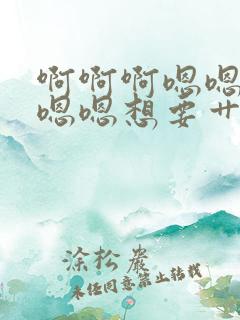 啊啊啊嗯嗯
嗯嗯想要艹
涂松岩
未经同意禁止转载